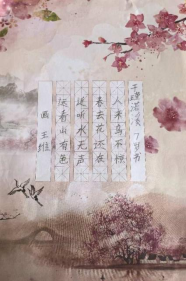 7岁书
人来鸟不惊
春去花还在
近听水无声
远看山有色
画 王维